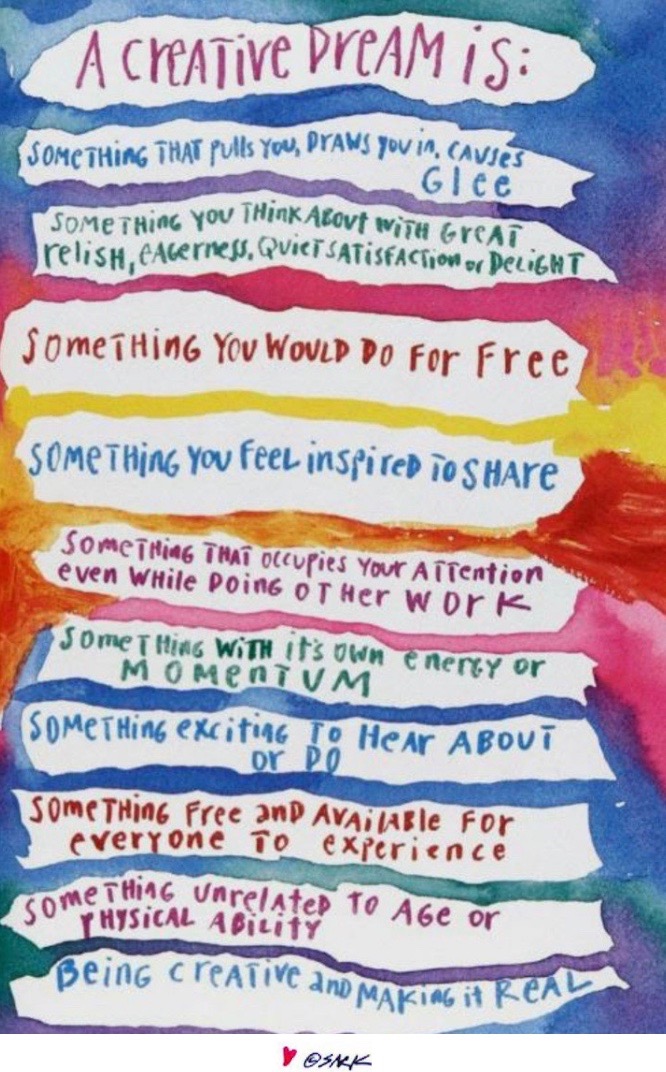 A CREATIVE DREAM iS:
SOMETHING THAT PULLS YOU, DRAWS YOU in, CAUSES
GLEE
SOMETHING YOU THINK ABOUT WITH GREAT
RELISH, EAGERNESS, QUIET SATISFACTION or DELIGHT
SOMETHING YOU WOULD DO FOR FREE
SOMETHING YOU FEEL inspired TO SHARE
SOMETHING THAT OCCUPIES YOUR ATTENTION
even WHILE DOING OTHER WORK
SOMETHING WITH it's OWN energy or
MOMENTUM
SOMETHING exciting TO HEAR ABOUT
or DO
SOMETHING FREE and AVAILABLE FOR
everyone TO experience
SOMETHING UNRELATED TO AGE or
PHYSICAL ABILITY
Being CREATIVE and MAKING it REAL
@SARK